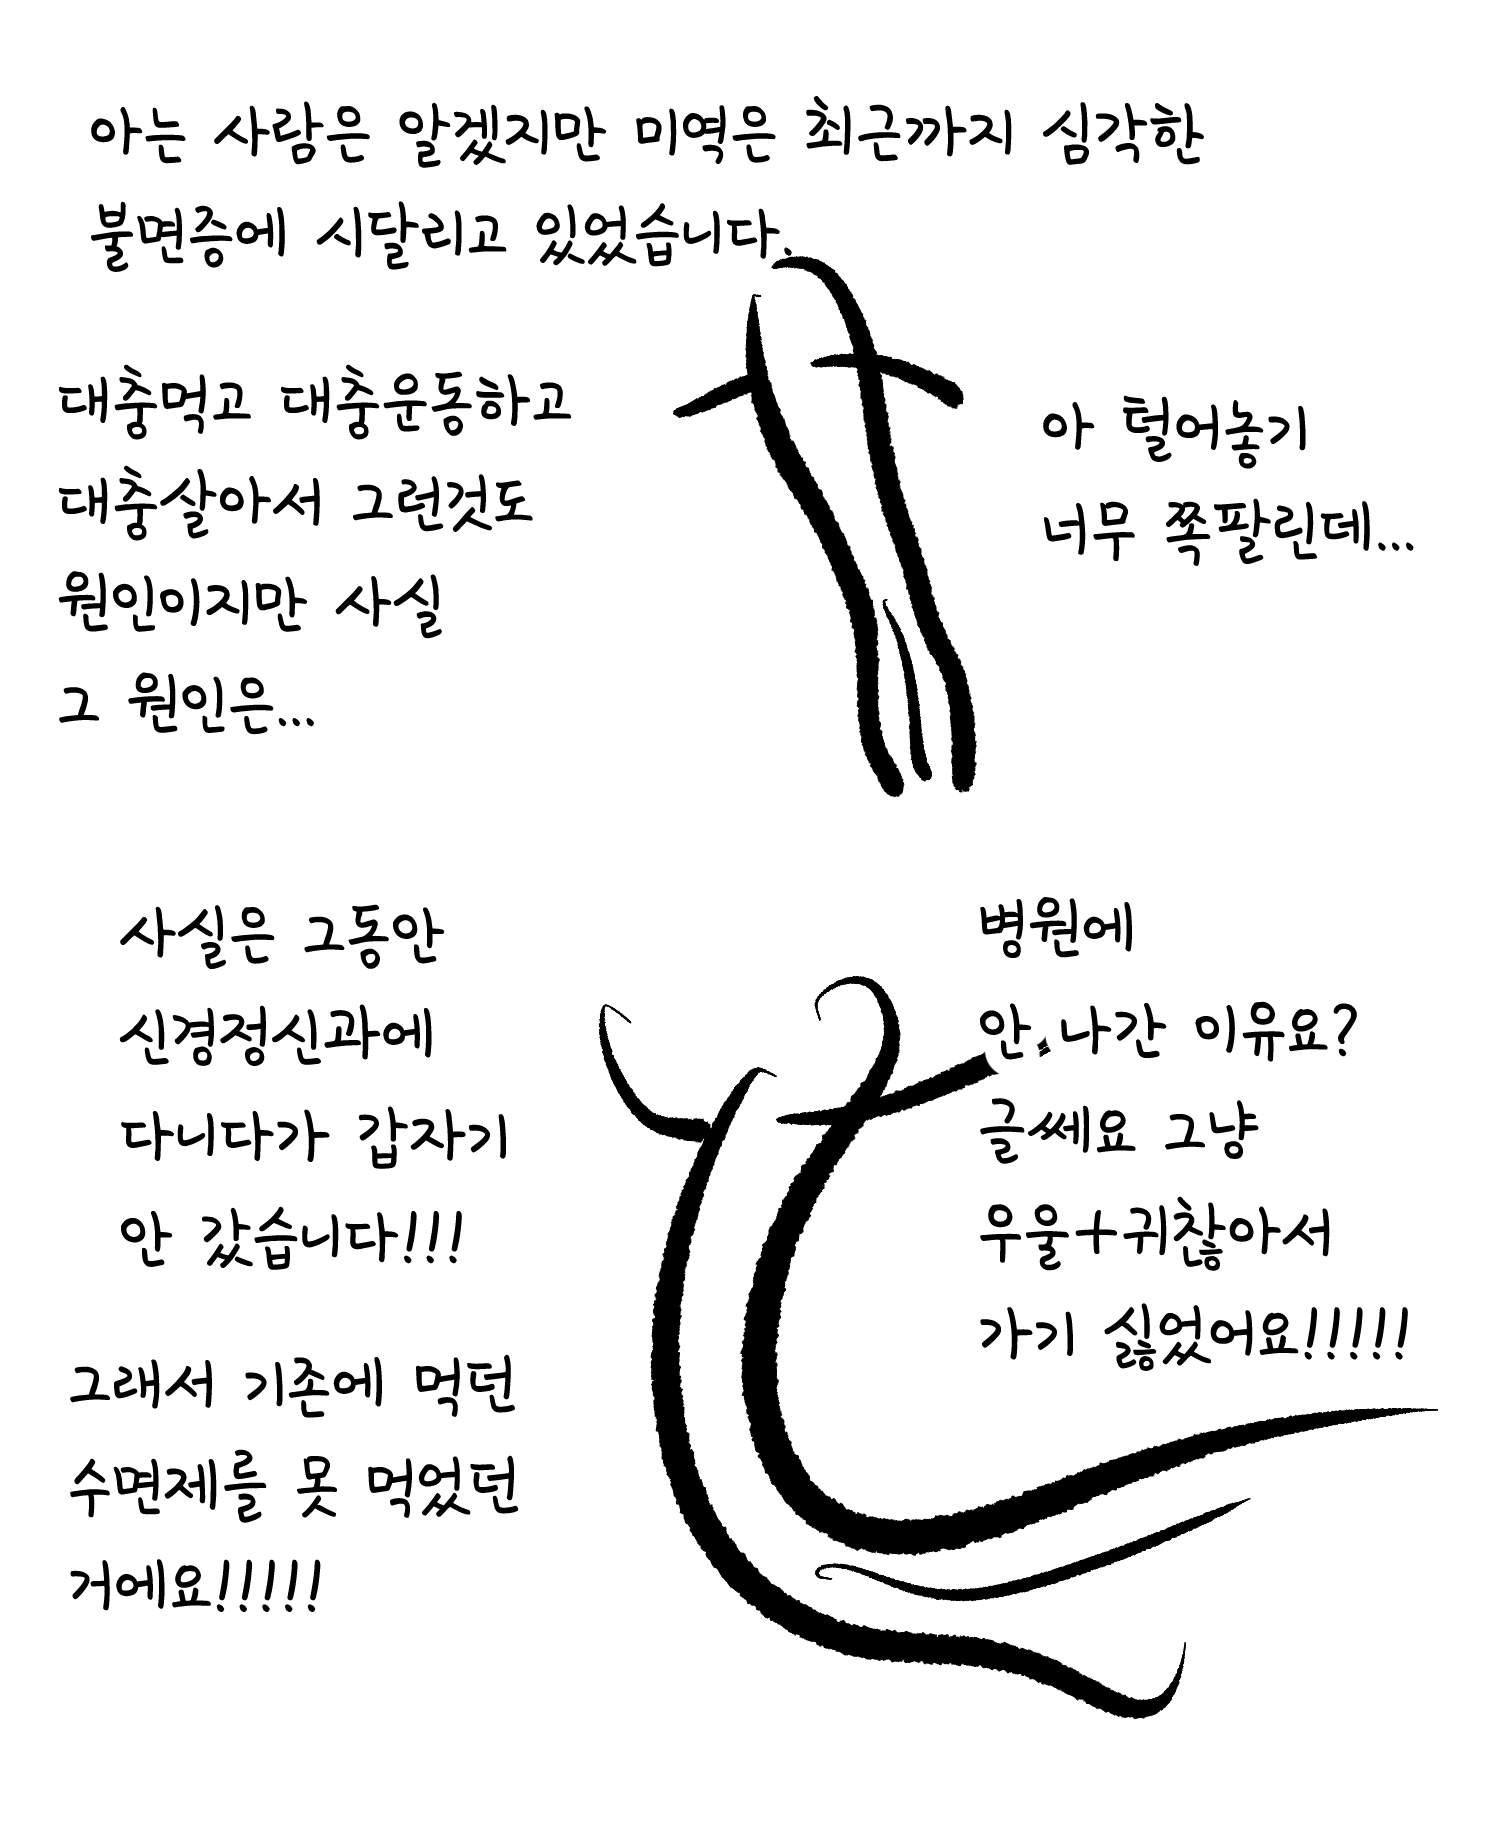 아는 사람은 알겠지만 미역은 최근까지 심각한
불면증에 시달리고 있었습니다.
대충먹고 대충운동하고
대충살아서 그런것도
원인이지만 사실
그 원인은...
아 털어놓기
너무 쪽팔린데...
사실은 그동안
신경정신과에
다니다가 갑자기
안 갔습니다!!!
병원에
안.나간 이유요?
글쎄요 그냥
우울+귀찮아서
가기 싫었어요!!!!!
그래서 기존에 먹던
수면제를 못 먹었던
거에요!!!!!